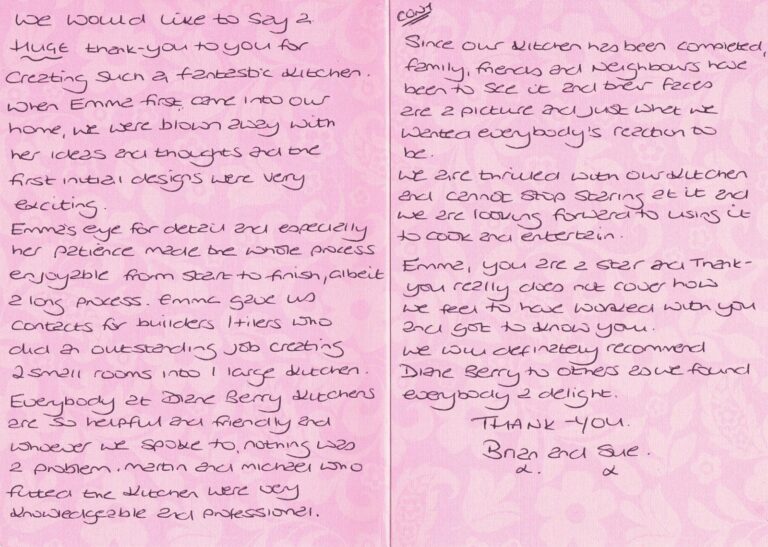 We would like to say a
HUGE thank-you to you for
creating such a fantastic kitchen.
When Emma first came into our
home, we were blown away with
her ideas and thoughts and the
first initial designs were very
exciting.
Emma's eye for detail and especially
her patience made the whole process
enjoyable from start to finish, albeit
a long process. Emma gave us
contacts for builders / tilers who
did an outstanding job creating
2 small rooms into 1 large kitchen.
Everybody at Diane Berry Kitchens
are so helpful and friendly and
whoever we spoke to, nothing was
a problem. Martin and Michael who
fitted the kitchen were very
knowledgeable and professional.
CONT
Since our kitchen has been completed,
family, friends and neighbours have
been to see it and their faces
are a picture and just what we
wanted everybody's reaction to
be.
We are thrilled with our kitchen
and cannot stop staring at it and
we are looking forward to using it
to cook and entertain.
Emma, you are a star and Thank-
you really does not cover how
we feel to have worked with you
and got to know you.
We will definitely recommend
Diane Berry to others as we found
everybody a delight.
THANK-YOU.
Brian and Sue.
x. x